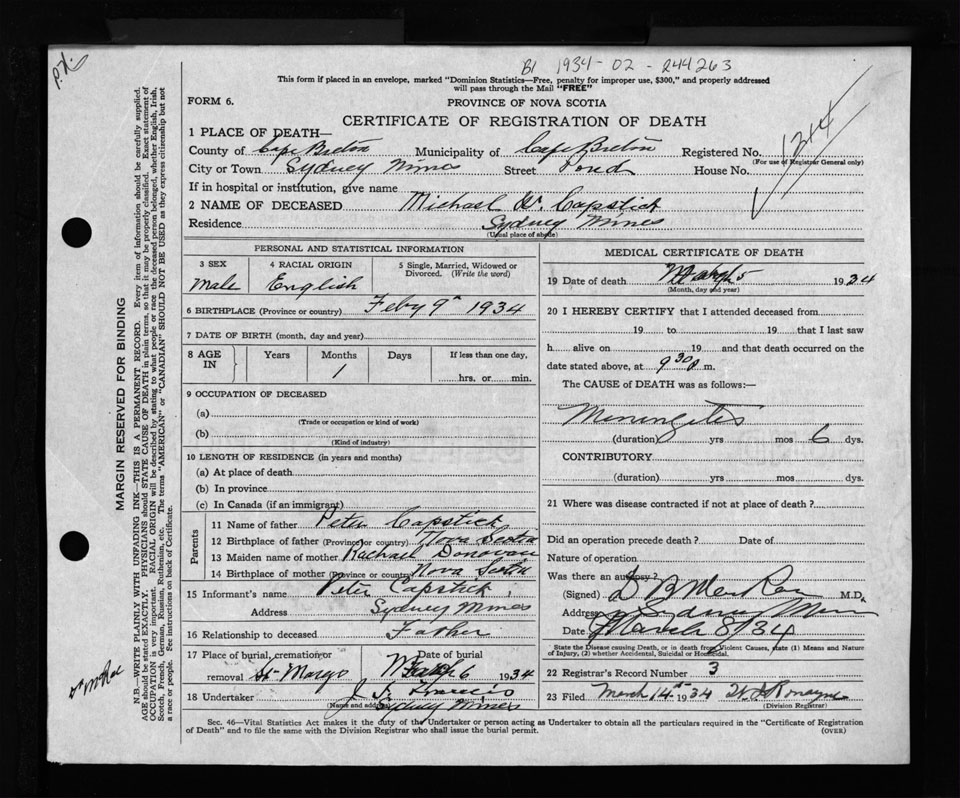 P.X.
B1 1934-02-244263
This form if placed in an envelope, marked "Dominion Statistics—Free, penalty for improper use, $300," and properly addressed
will pass through the Mail "FREE"
FORM 6.
PROVINCE OF NOVA SCOTIA
CERTIFICATE OF REGISTRATION OF DEATH
1314
1 PLACE OF DEATH—
County of Cape Breton Municipality of Cape Breton Registered No.
(For use of Registrar General only)
City or Town Sydney Mines Street Pond House No.
If in hospital or institution, give name
2 NAME OF DECEASED Michael W. Capstick
Residence Sydney Mines
(Usual place of abode)
PERSONAL AND STATISTICAL INFORMATION
3 SEX 4 RACIAL ORIGIN 5 Single, Married, Widowed or
Divorced. (Write the word)
Male English
6 BIRTHPLACE (Province or country) Feby 9th 1934
7 DATE OF BIRTH (month, day and year)
8 AGE IN Years Months Days If less than one day,
1 hrs. or min.
9 OCCUPATION OF DECEASED
(a)
(Trade or occupation or kind of work)
(b)
(Kind of industry)
10 LENGTH OF RESIDENCE (in years and months)
(a) At place of death
(b) In province
(c) In Canada (if an immigrant)
Parents
11 Name of father Peter Capstick
12 Birthplace of father (Province or country) Nova Scotia
13 Maiden name of mother Rachael Donovan
14 Birthplace of mother (Province or country) Nova Scotia
15 Informant's name Peter Capstick
Address Sydney Mines
16 Relationship to deceased Father
17 Place of burial, cremation or Date of burial
removal March 6 1934
18 Undertaker J
(Name and address) Sydney Mines
MEDICAL CERTIFICATE OF DEATH
19 Date of death March 5 1934
(Month, day and year)
20 I HEREBY CERTIFY that I attended deceased from
19 to 19 that I last saw
h alive on 19 and that death occurred on the
date stated above, at 9 30 p m.
The CAUSE of DEATH was as follows:—
Meningites
(duration) yrs mos 6 dys.
CONTRIBUTORY
(duration) yrs mos dys.
21 Where was disease contracted if not at place of death?
Did an operation precede death? Date of
Nature of operation
Was there an autopsy?
(Signed) M.D.
Address Sydney Mines
Date March 8/34
State the Disease causing Death, or in death from Violent Causes, state (1) Means and Nature
of Injury, (2) whether Accidental, Suicidal or Homicidal.
22 Registrar's Record Number 3
23 Filed March 14th 1934
(Division Registrar)
Sec. 46—Vital Statistics Act makes it the duty of the Undertaker or person acting as Undertaker to obtain all the particulars required in the "Certificate of Registration
of Death" and to file the same with the Division Registrar who shall issue the burial permit. (OVER)
MARGIN RESERVED FOR BINDING
N.B.—WRITE PLAINLY WITH UNFADING INK—THIS IS A PERMANENT RECORD. Every item of information should be carefully supplied.
AGE should be stated EXACTLY. PHYSICIANS should STATE CAUSE OF DEATH in plain terms, so that it may be properly classified. Exact statement of
OCCUPATION is very important. RACIAL ORIGIN will be described by stating to what people or race the deceased person belonged, whether English, Irish,
Scotch, French, German, Russian, Ruthenian, etc. The terms "AMERICAN" or "CANADIAN" SHOULD NOT BE USED as they express citizenship but not
a race or people. See instructions on back of Certificate.